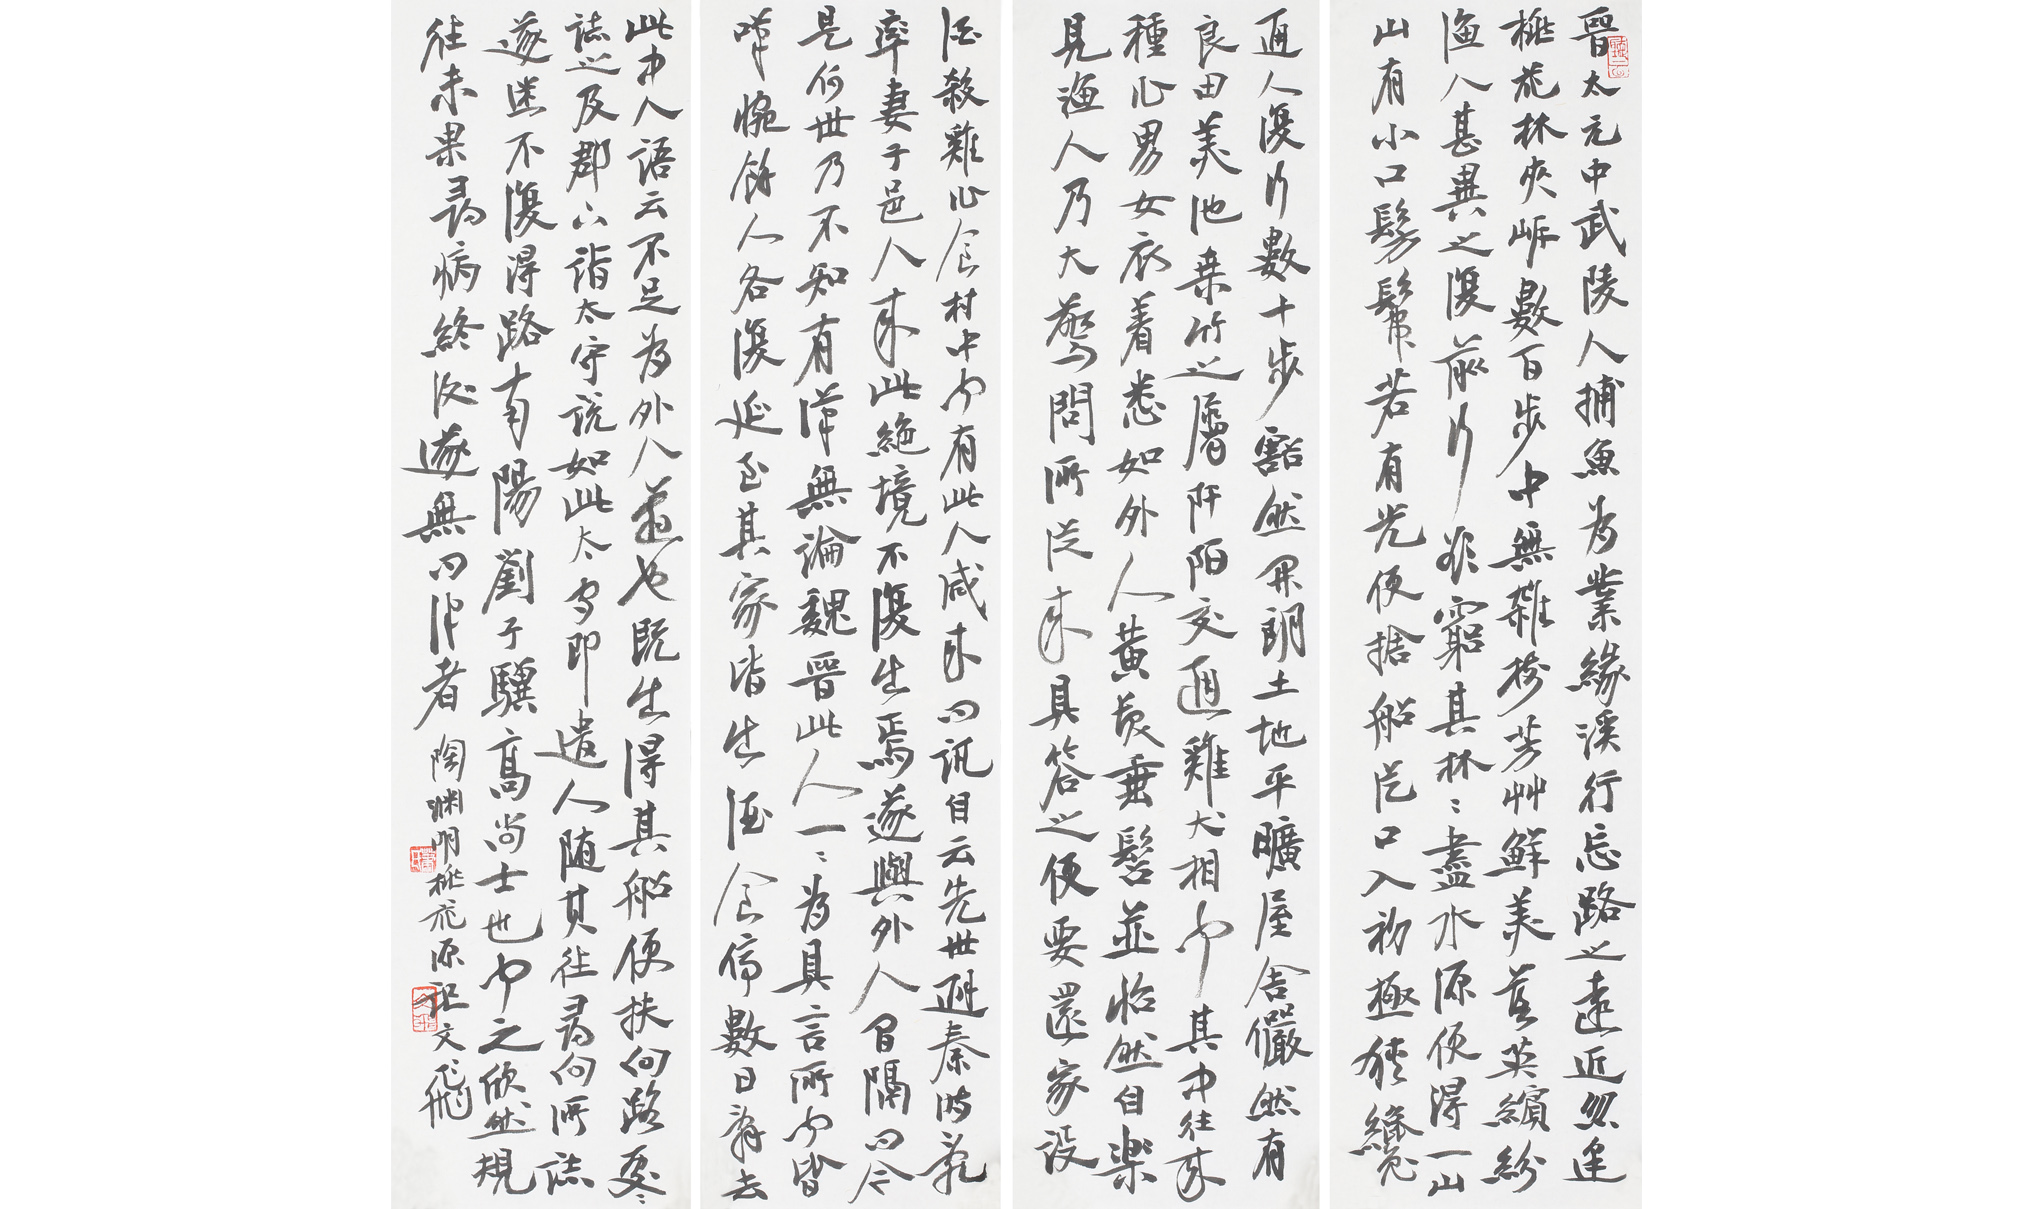 晉太元中武陵人捕魚為業緣溪行忘路之遠近忽逢
桃花林夾岸數百步中無雜樹芳艸鮮美落英繽紛
漁人甚異之復前行欲窮其林林盡水源便得一山
山有小口髣髴若有光便捨船從口入初極狹纔
通人復行數十步豁然開朗土地平曠屋舍儼然有
良田美池桑竹之屬阡陌交通雞犬相聞其中往來
種作男女衣着悉如外人黃髮垂髫並怡然自樂
見漁人乃大驚問所從來具答之便要還家設
酒殺雞作食村中聞有此人咸來問訊自云先世避秦時亂
率妻子邑人來此絕境不復出焉遂與外人間隔問今
是何世乃不知有漢無論魏晉此人一一為具言所聞皆
嘆惋餘人各復延至其家皆出酒食停數日辭去
此中人語云不足為外人道也既出得其船便扶向路處處
誌之及郡下詣太守說如此太守即遣人隨其往尋向所誌
遂迷不復得路南陽劉子驥高尚士也聞之欣然規
往未果尋病終後遂無問津者 陶淵明桃花源記 文飛